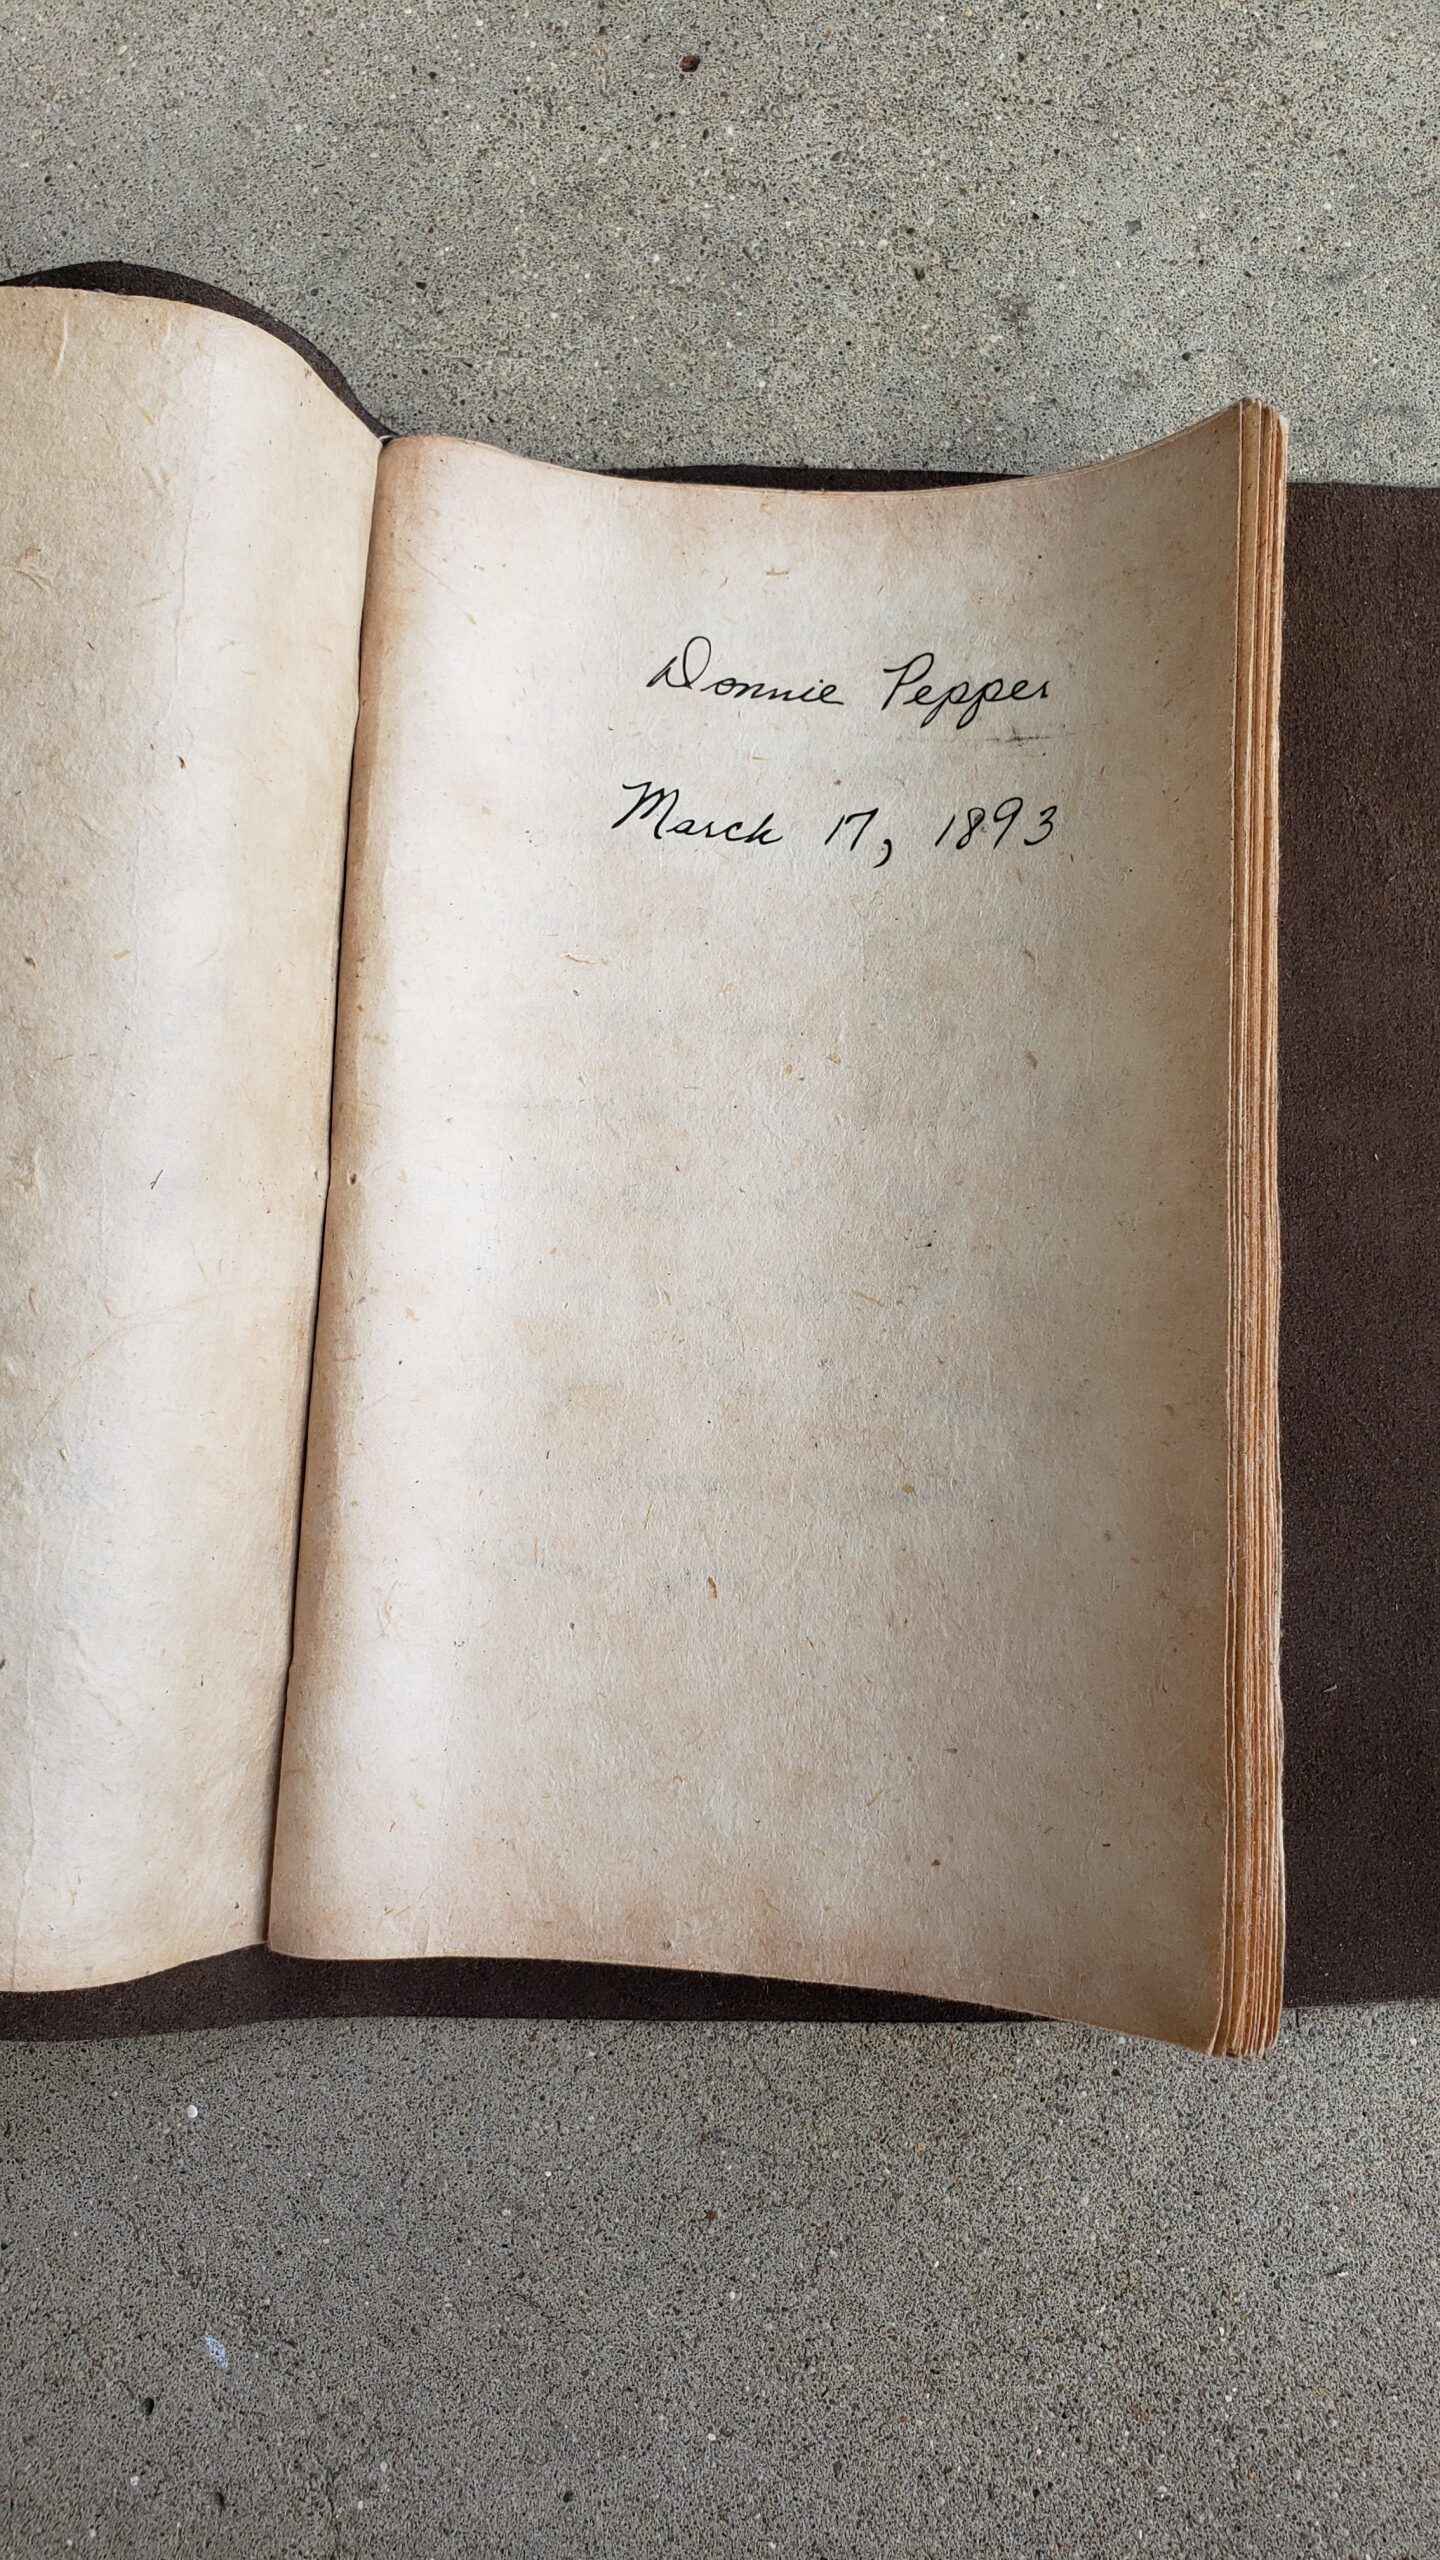 Donnie Pepper
March 17, 1893